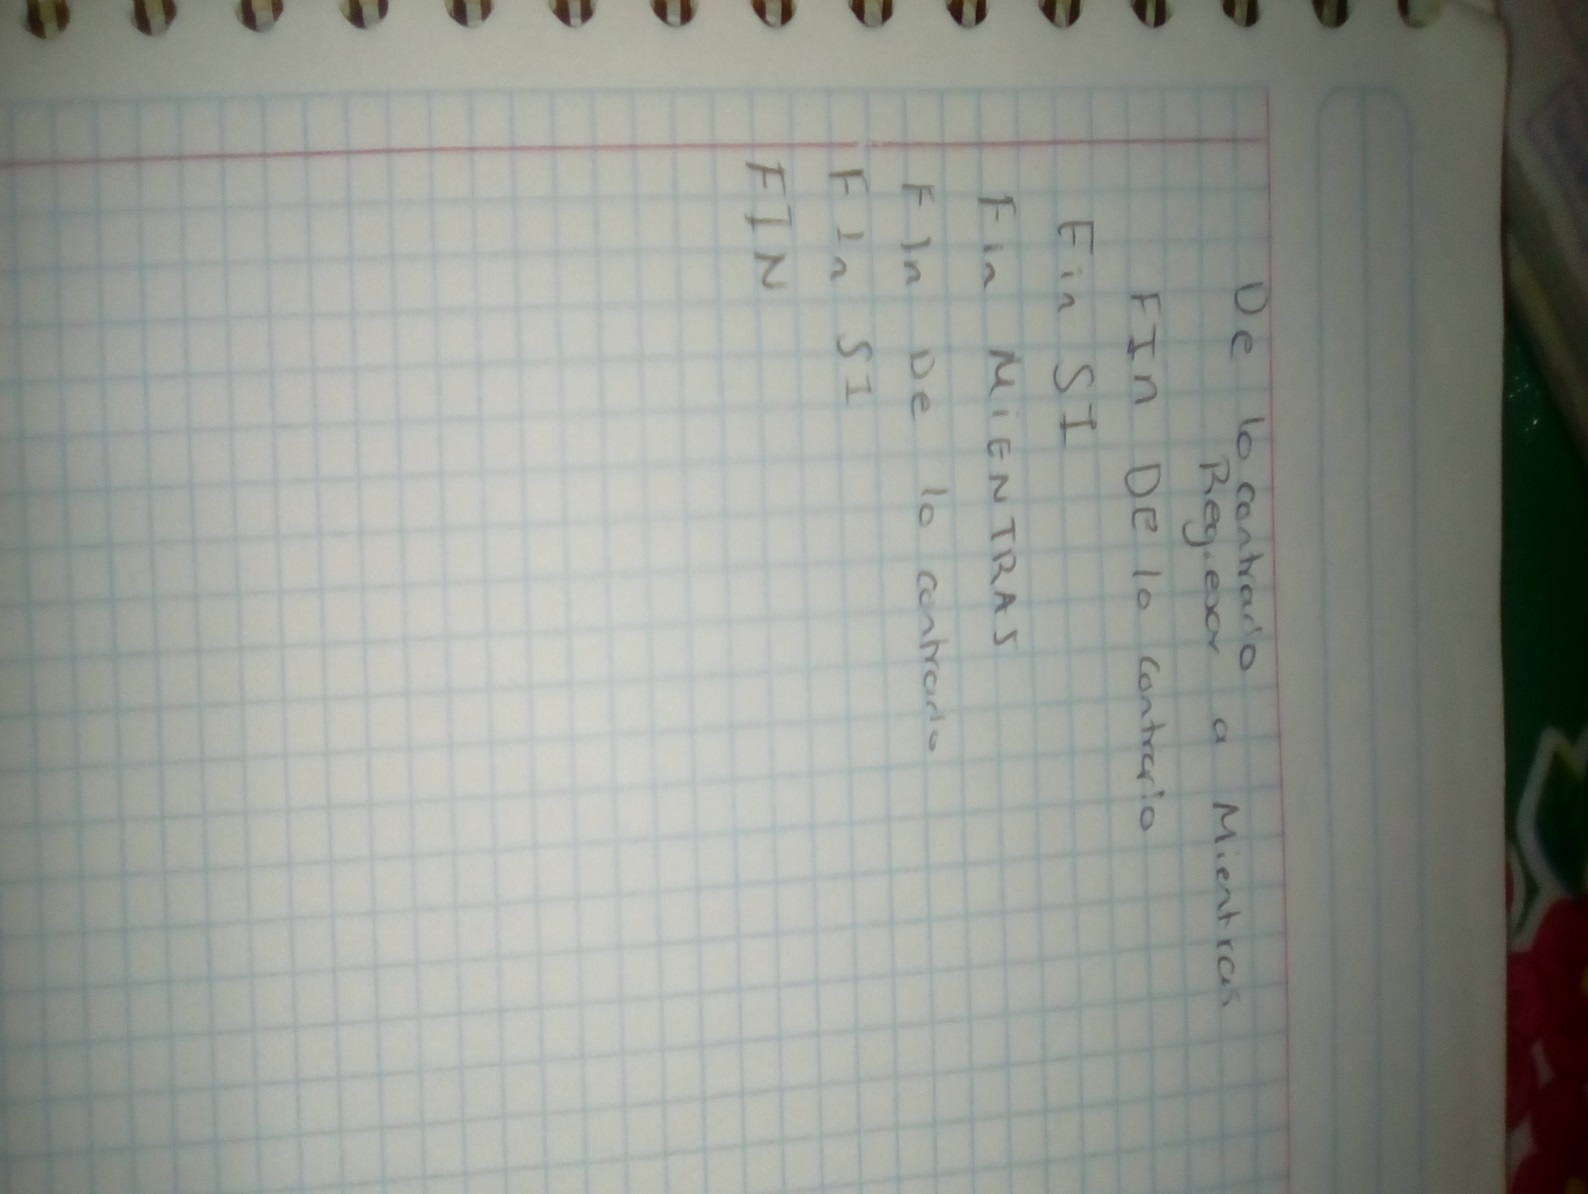 De lo contrario
Regresar a Mientras
FIn DE lo contrario
Fin SI
Fin MiENTRAS
FIn De lo contrario
FIn SI
FIN